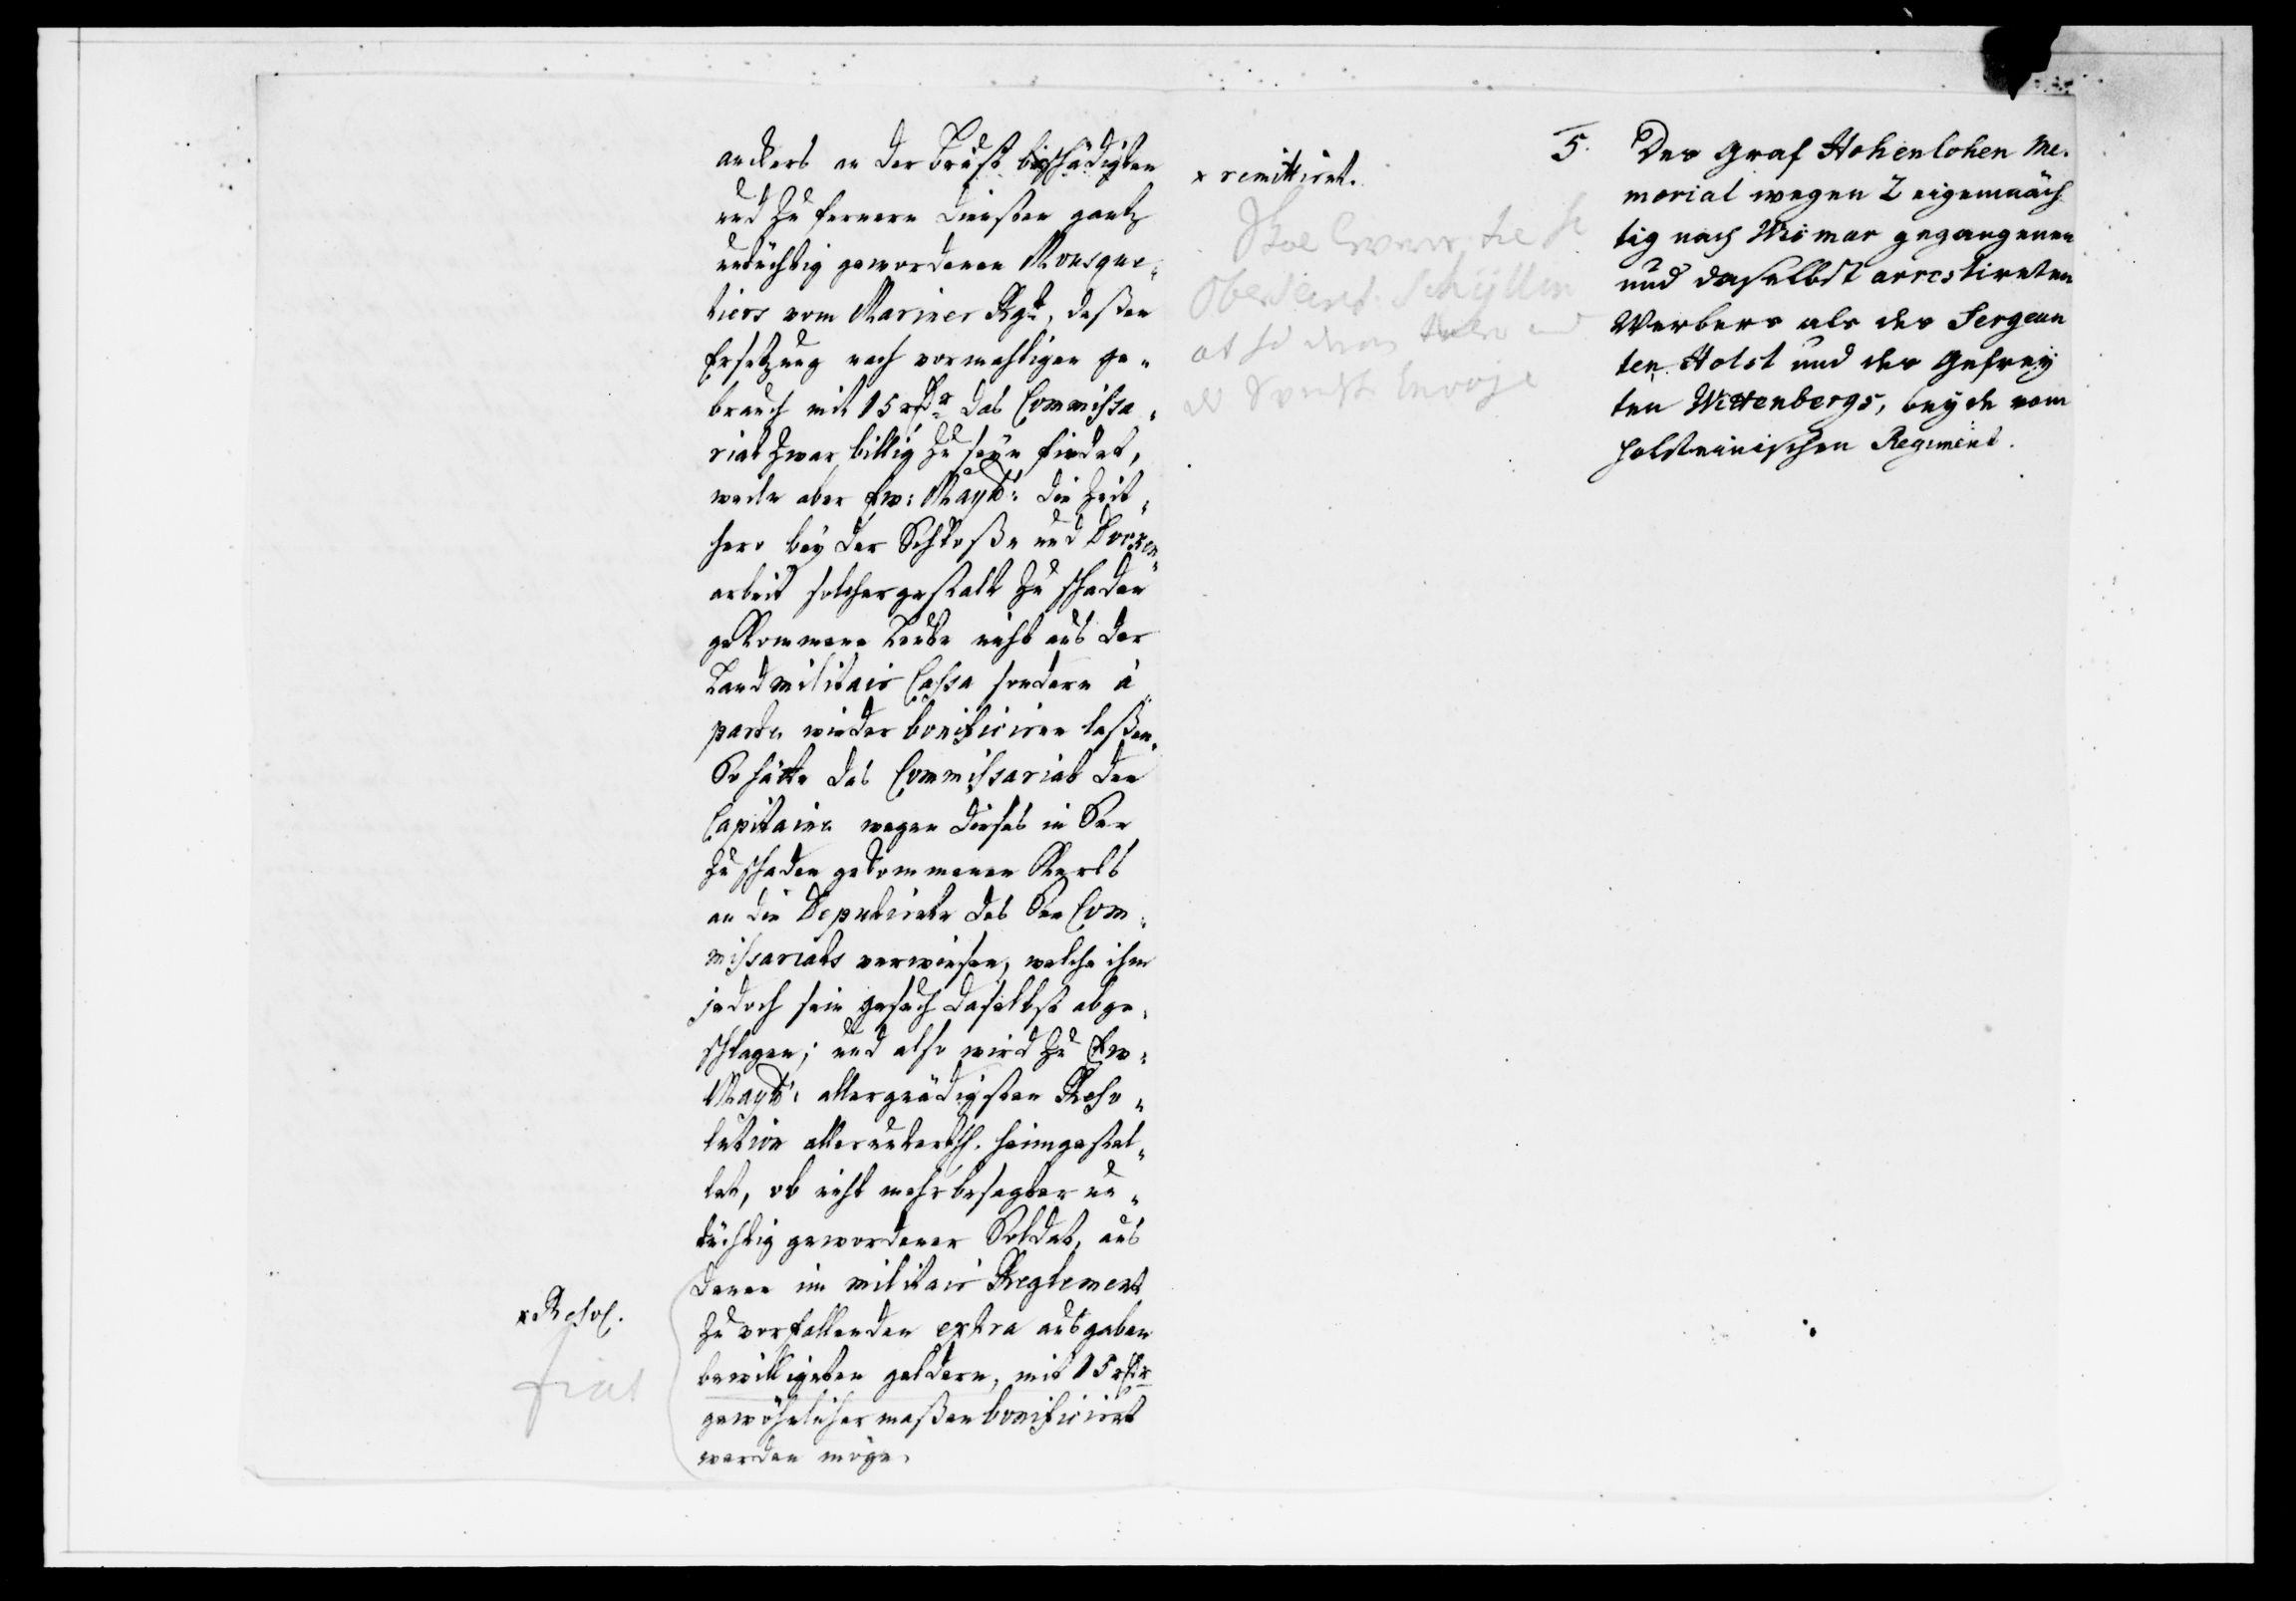 anckers an der Brust beschädigten
und zu fernern diensten gantz
untüchtig gewordenen Mousque-
tiers vom Mariner Rgt, deßen
Ersetzung nach vormahligen ge-
brauch mit 15 rdr das Commissa-
riat zwar billig zu seyn findet,
weiln aber Ew: Maytt: die Zeit-
hero bey der Schloße und Docken
arbeit solchergestalt zu schaden
gekommene Leute nicht aus der
Landmilitair Cassa sondern à
parte wieder bonificiren laßen.
So hätte das Commissariat den
Capitaine wegen dieses in See
zu schaden gekommenen Kerls
an die Deputirte des See Com-
missariats verwiesen, welche ihm
jedoch sein gesuch daselbst abge-
schlagen; und also wird zu Ew:
Maytt: allergnädigsten Reso-
lution allerunterth. heimgestel-
let, ob nicht mehrbesagter un-
tüchtig gewordener Soldat, aus
denen im militair Reglement
zu vorfallenden extra ausgaben
bewilligten geldern, mit 15 rdr
gewöhnlicher maßen bonificiret
werden möge.
x Resol.
fiat
x remittiret.
Oberstl. Schÿllin
at
Envoje
5. Des Graf Hohenlohen Me-
morial wegen 2 eigenmäch
tig nach Wismar gegangenen
und daselbst arrestireten
Werbers als des Sergean
ten Holst und des Gefrey
ten Wittenbergs, beyde vom
holsteinischen Regiment.